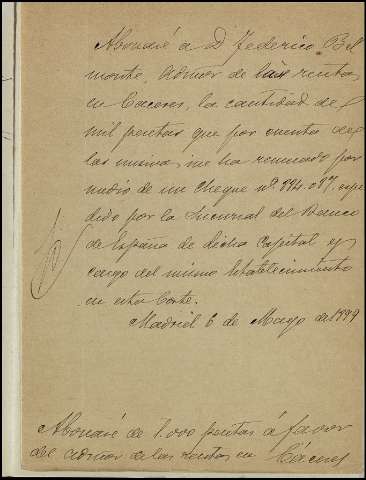 Abonaré a D. Federico Bel
monte, Admor de mis rentas
en Caceres, la cantidad de
mil pesetas que por cuenta de
las mismas, me ha remesado por
medio de un cheque nº 894.087, espe
dido por la Sucursal del Banco
de España de dicha Capital y
cargo del mismo Establecimiento
en esta Corte.
Madrid 6 de Mayo de 1899
Abonaré de 1.000 pesetas á favor
del admor de las rentas en Cáceres